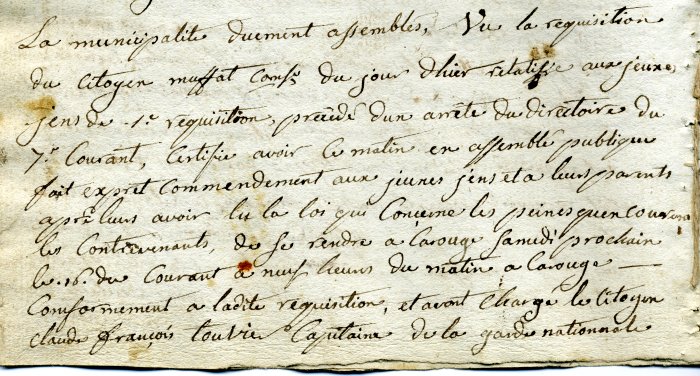 La municipalité duement assembles, Vu la requisition
du Citoyen muffat Comsre du jour dhier relatifie aux jeunes
jens de 1e requisition, précédé dun arrêté du directoire du
7e Courant, Certifie avoir ce matin en assemblé publique
fait expret commendement aux jeunes jens et a leurs parents
après leurs avoir lu la loi qui Concerne les peines quencourrent
les Contrevenants, de se rendre a Carouge Samedi prochain
le .16. du Courant a neuf heurs du matin a Carouge —
Comformement a ladite requisition, et avons Chargé le Citoyen
Claude françois Capitaine de la garde nationnale